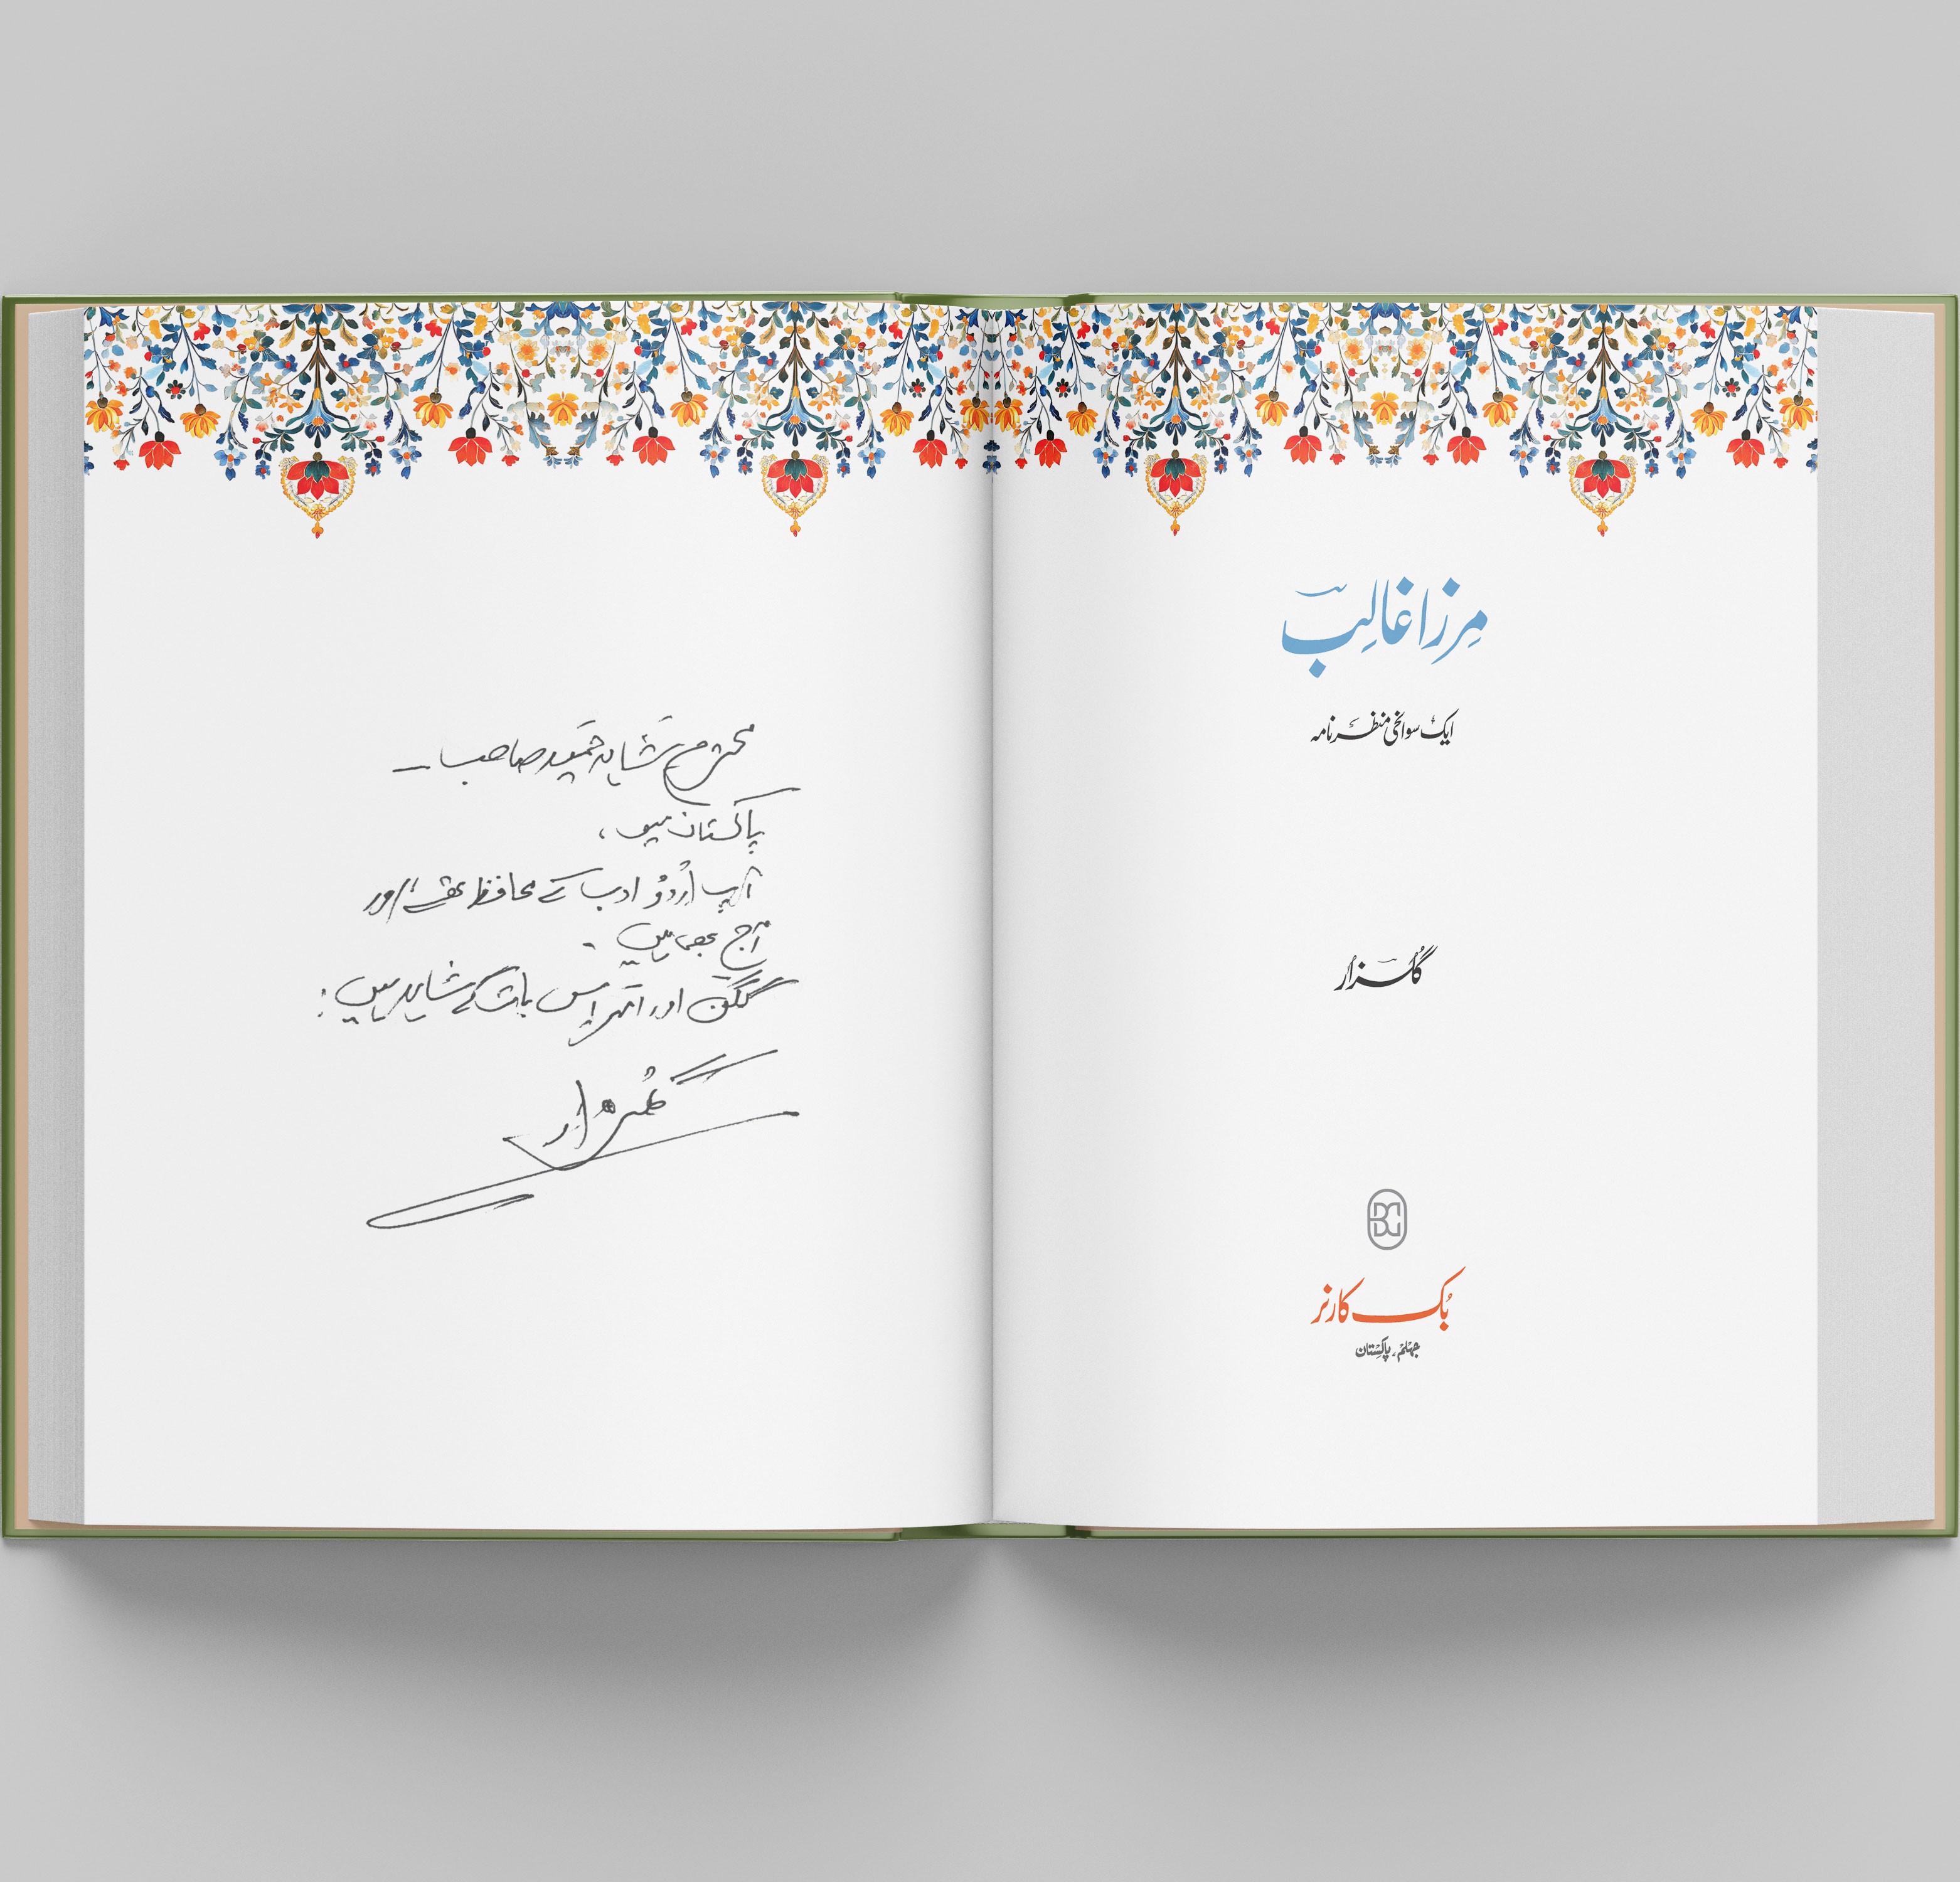 محترمی شاہد حمید صاحب ۔
پاکستان میں ،
آپ اُردُو ادب کے محافظ تھے، اور
آج بھی ہیں ۔
گگن اور امر اس بات کے شاہد ہیں !
گلزار
مِرزا غالِبؔ
ایک سوانحی منظرنامہ
گُلزار
BC
بُک کارنر
جہلم، پاکستان